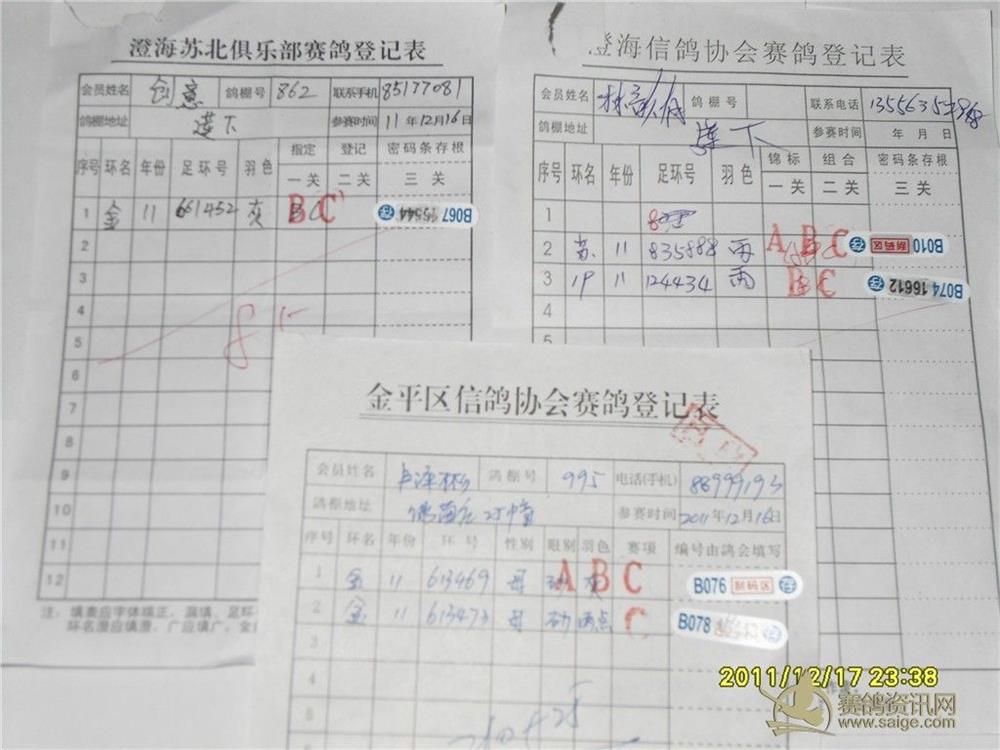 澄海苏北俱乐部赛鸽登记表
会员姓名 创意 鸽棚号 862 联系手机 85177081
鸽棚地址 莲下 参赛时间 11年12月16日
序号 环名 年份 足环号 羽色 指定 登记 密码条存根
一关 二关 三关
1 金 11 661452 灰 B C B067
2
3
4
5
6
7
8
9
10
11
12
注: 填表应字体端正、漏填、足环
环名澄应填澄、广应填广、金
澄海信鸽协会赛鸽登记表
会员姓名 鸽棚号 联系电话
鸽棚地址 莲下 参赛时间 年 月 日
序号 环名 年份 足环号 羽色 锦标 组合 密码条存根
一关 二关 三关
1
2 苏 11 835888 雨 A B C 制码区 B010
3 沪 11 124434 雨 B C B074 16612
4
5
金平区信鸽协会赛鸽登记表
会员姓名 鸽棚号 995 电话(手机) 88999193
鸽棚地址 参赛时间 2011年12月16日
序号 环名 年份 环号 性别 眼别 羽色 赛项 编号由鸽会填写
1 金 11 613469 母 砂 灰 A B C B076 制码区
2 金 11 613473 母 砂 雨点 C B078
3
4
5
2011/12/17 23:38
赛鸽资讯网
www.saige.com